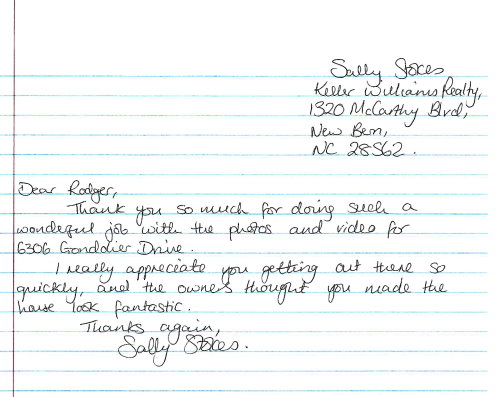 Sally Stokes
Keller Williams Realty,
1320 McCarthy Blvd,
New Bern,
NC 28562.
Dear Rodger,
Thank you so much for doing such a
wonderful job with the photos and video for
6306 Gondolier Drive.
I really appreciate you getting out there so
quickly, and the owners thought you made the
house look fantastic.
Thanks again,
Sally Stokes.